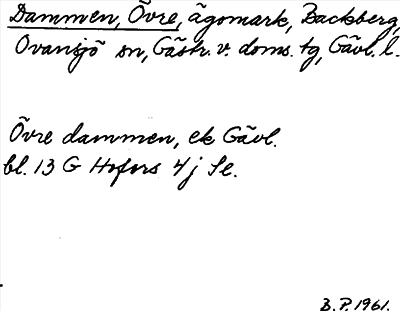 Dammen, Övre, ägomark, Backberg,
Ovansjö sn, Gästr. v. doms. tg, Gävl. l.
Övre dammen, ek Gävl.
bl. 13 G Hofors 4 j Se.
B.P. 1961.